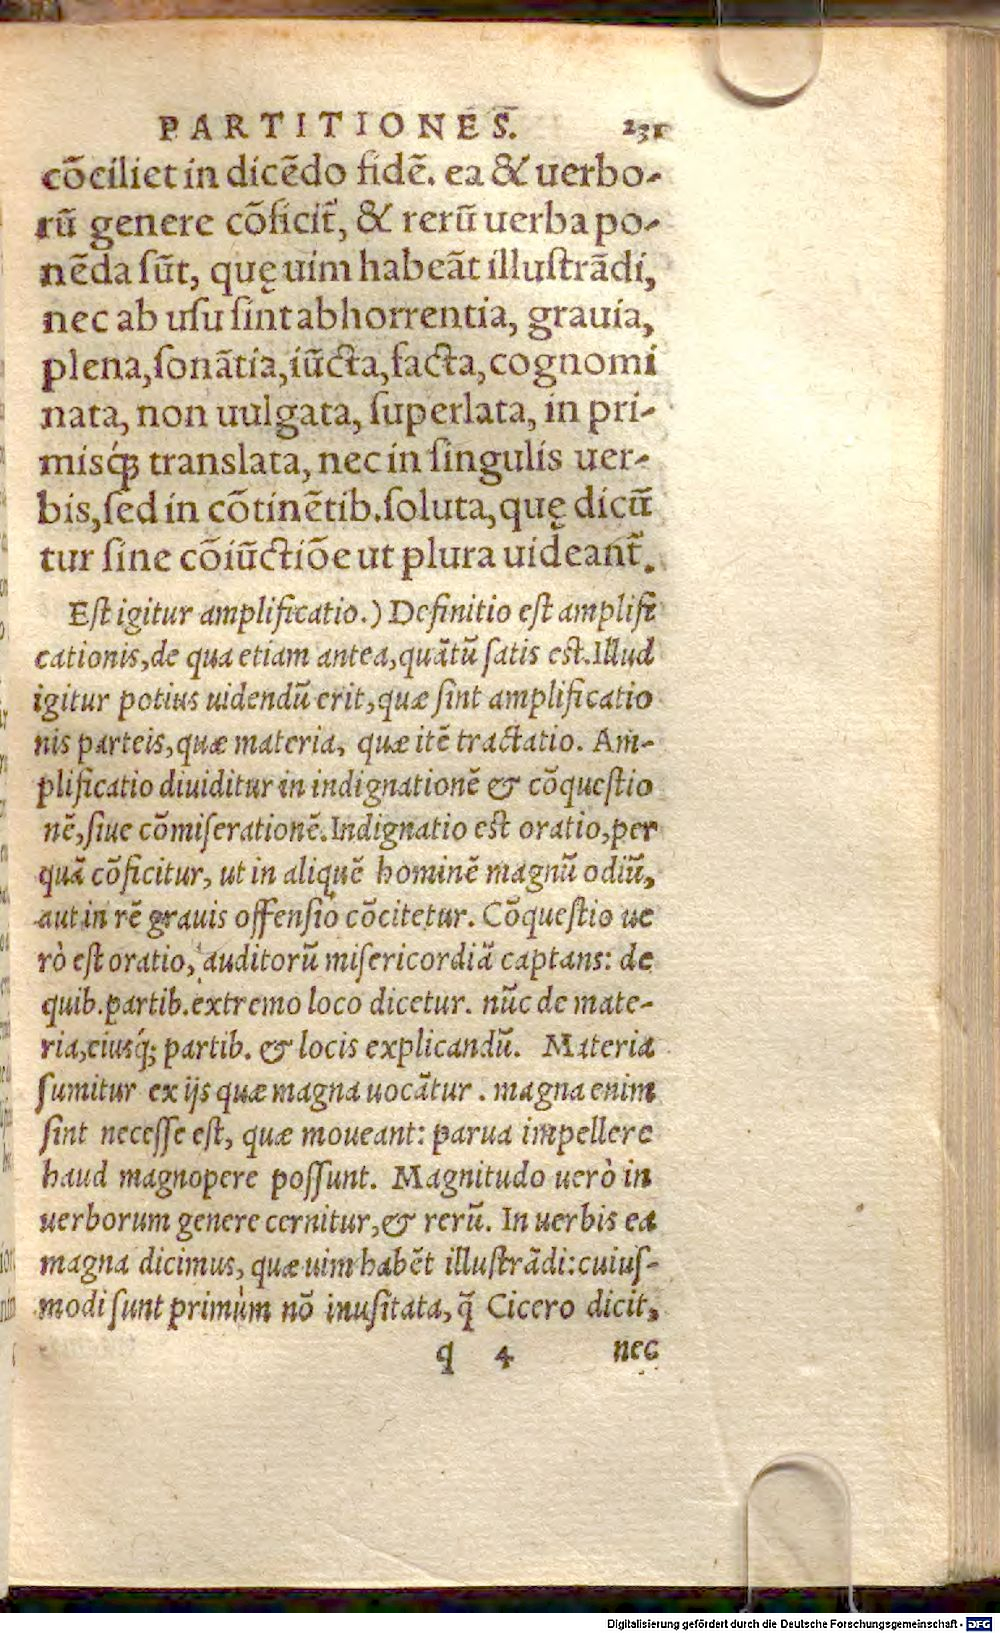 PARTITIONES. 231
cõciliet in dicẽdo fidẽ. ea & uerbo-
rũ genere cõficit̃, & rerũ uerba po-
nẽda sũt, quę uim habeãt illustrãdi,
nec ab usu sint abhorrentia, grauia,
plena, sonãtia, iũcta, facta, cognomi
nata, non uulgata, superlata, in pri-
misq́; translata, nec in singulis uer-
bis, sed in cõtinẽtib. soluta, quę dicũ
tur sine cõiũctiõe ut plura uideant̃.
Est igitur amplificatio.) Definitio est amplifi
cationis, de qua etiam antea, quãtũ satis est. Illud
igitur potius uidendũ erit, quæ sint amplificatio
nis parteis, quæ materia, quæ itẽ tractatio. Am-
plificatio diuiditur in indignationẽ & cõquestio
nẽ, siue cõmiserationẽ. Indignatio est oratio, per
quã cõficitur, ut in aliquẽ hominẽ magnũ odiũ,
aut in rẽ grauis offensio cõcitetur. Cõquestio ue
rò est oratio, auditorũ misericordiã captans: de
quib. partib. extremo loco dicetur. nũc de mate-
ria, eiusq́; partib. & locis explicandũ. Materia
sumitur ex ijs quæ magna uocãtur. magna enim
sint necesse est, quæ moueant: parua impellere
haud magnopere possunt. Magnitudo uerò in
uerborum genere cernitur, & rerũ. In uerbis ea
magna dicimus, quæ uim habẽt illustrãdi: cuius-
modi sunt primùm nõ inusitata, q̃ Cicero dicit,
q 4 nec
Digitalisierung gefördert durch die Deutsche Forschungsgemeinschaft - DFG